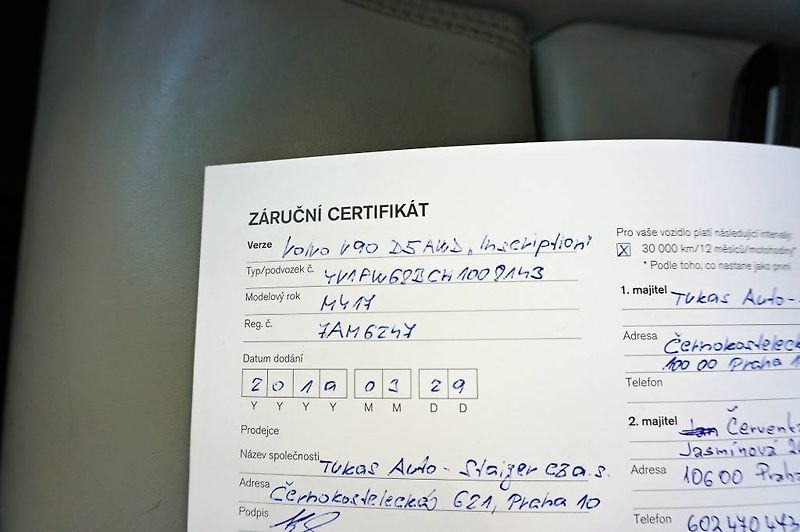 ZÁRUČNÍ CERTIFIKÁT
Verze Volvo V90 D5 AWD „Inscription"
Typ/podvozek č. YV1PW68BCH1009143
Modelový rok MY17
Reg. č. 7AM6247
Datum dodání
2 0 1 9 0 3 2 9
Y Y Y Y M M D D
Prodejce
Název společnosti TUKAS Auto - Staiger CZ a.s.
Adresa Černokostelecká 621, Praha 10
Podpis
Pro vaše vozidlo platí následující intervaly:
X 30 000 km/12 měsíců/motohodiny*
* Podle toho, co nastane jako první
1. majitel TUKAS Auto-
Adresa Černokosteleck
100 00 Praha 1
Telefon
2. majitel Jan Červenk
Jasmínová 2
Adresa 10600 Praha
Telefon 602470443